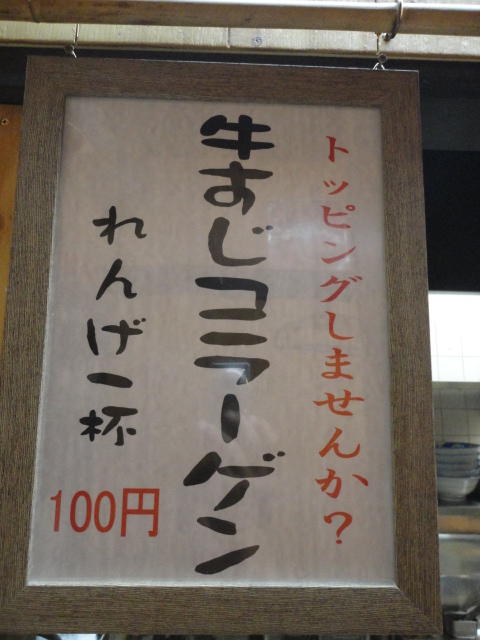 トッピングしませんか?
牛すじコラーゲン
れんげ一杯
100円